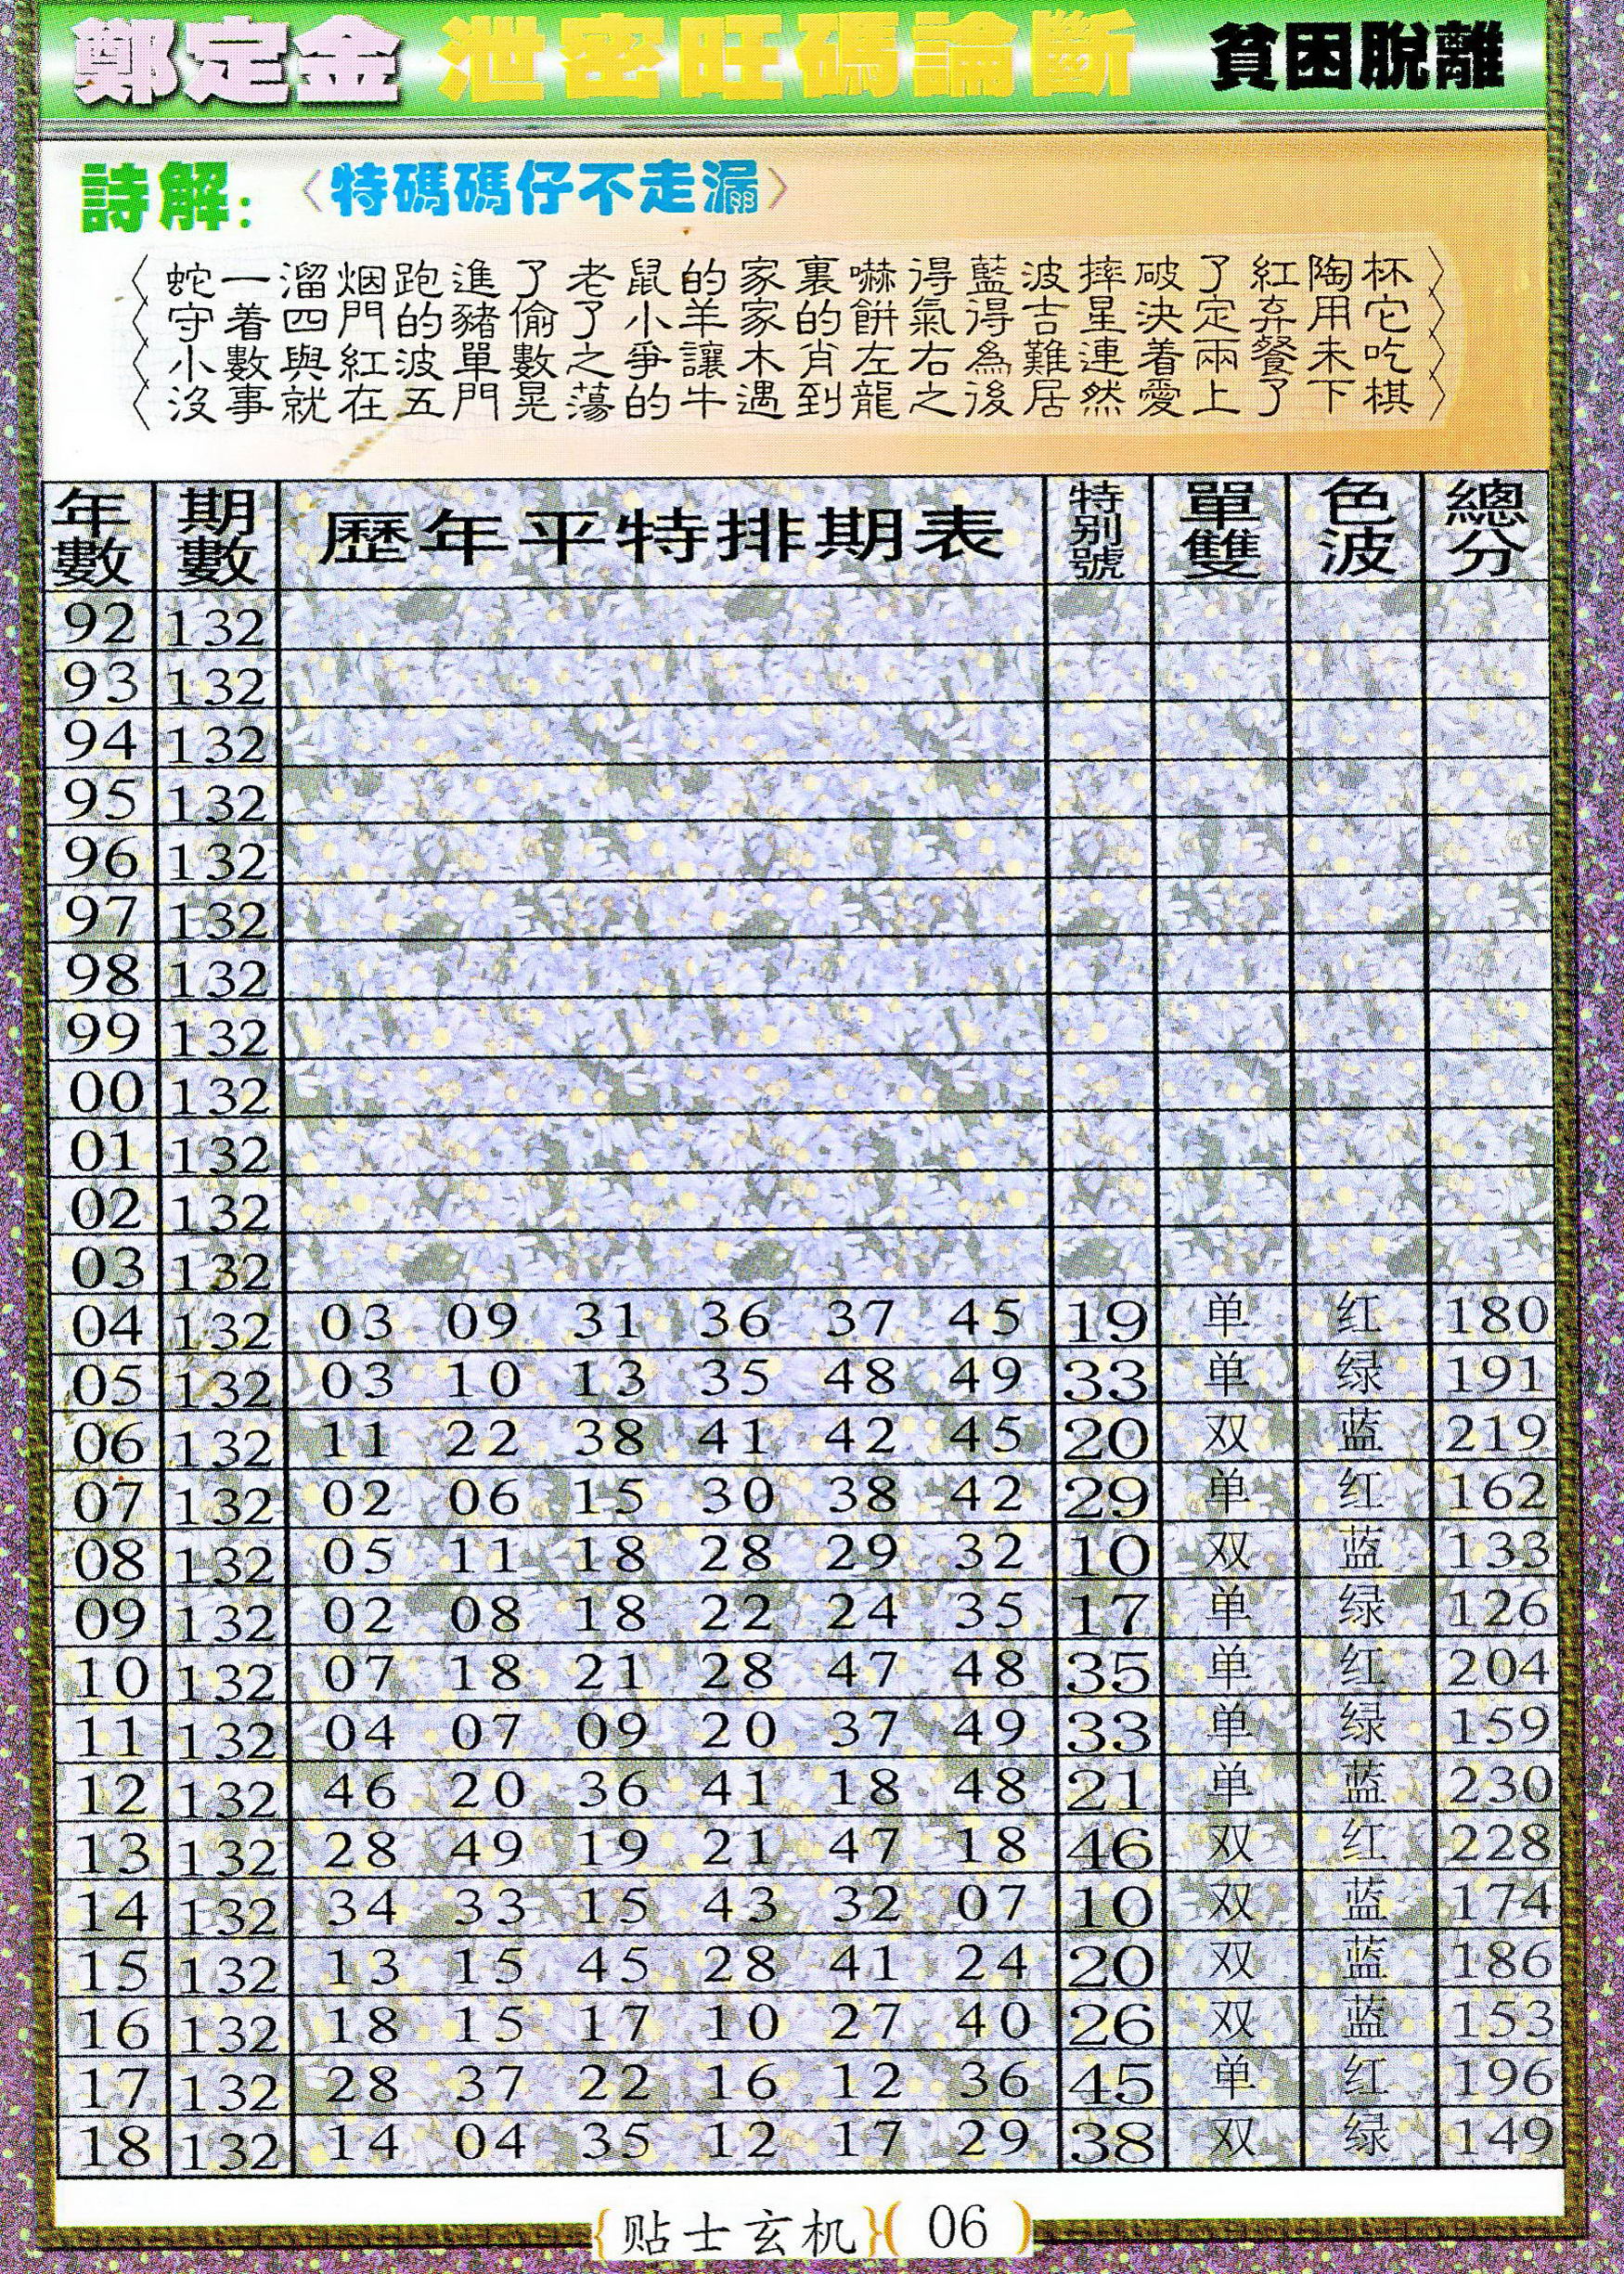 鄭定金 泄密旺碼論斷 貧困脫離
詩解：〈特碼碼仔不走漏〉
〈蛇一溜烟跑進了老鼠的家裏嚇得藍波摔破了紅陶杯〉
〈守着四門的豬偷了小羊家的餅氣得吉星決定弃用它〉
〈小數與紅波單數之爭讓木肖左右為難連着兩餐未吃〉
〈沒事就在五門晃蕩的牛遇到龍之後居然愛上了下棋〉
年數 期數 歷年平特排期表 特别號 單雙 色波 總分
92 132
93 132
94 132
95 132
96 132
97 132
98 132
99 132
00 132
01 132
02 132
03 132
04 132 03 09 31 36 37 45 19 单 红 180
05 132 03 10 13 35 48 49 33 单 绿 191
06 132 11 22 38 41 42 45 20 双 蓝 219
07 132 02 06 15 30 38 42 29 单 红 162
08 132 05 11 18 28 29 32 10 双 蓝 133
09 132 02 08 18 22 24 35 17 单 绿 126
10 132 07 18 21 28 47 48 35 单 红 204
11 132 04 07 09 20 37 49 33 单 绿 159
12 132 46 20 36 41 18 48 21 单 蓝 230
13 132 28 49 19 21 47 18 46 双 红 228
14 132 34 33 15 43 32 07 10 双 蓝 174
15 132 13 15 45 28 41 24 20 双 蓝 186
16 132 18 15 17 10 27 40 26 双 蓝 153
17 132 28 37 22 16 12 36 45 单 红 196
18 132 14 04 35 12 17 29 38 双 绿 149
{贴士玄机}( 06 )